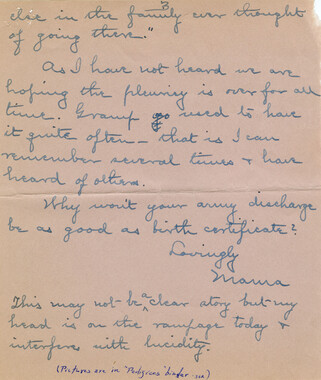 3
else in the family ever thought
of going there."
As I have not heard we are
hoping the pleurisy is over for all
time. Gramp used to have
it quite often - that is I can
remember several times & have
heard of others.
Why won't your army discharge
be as good as birth certificate?
Lovingly
Mama
This may not be a clear story but my
head is on the rampage today &
interferes with lucidity.
(Pictures are in